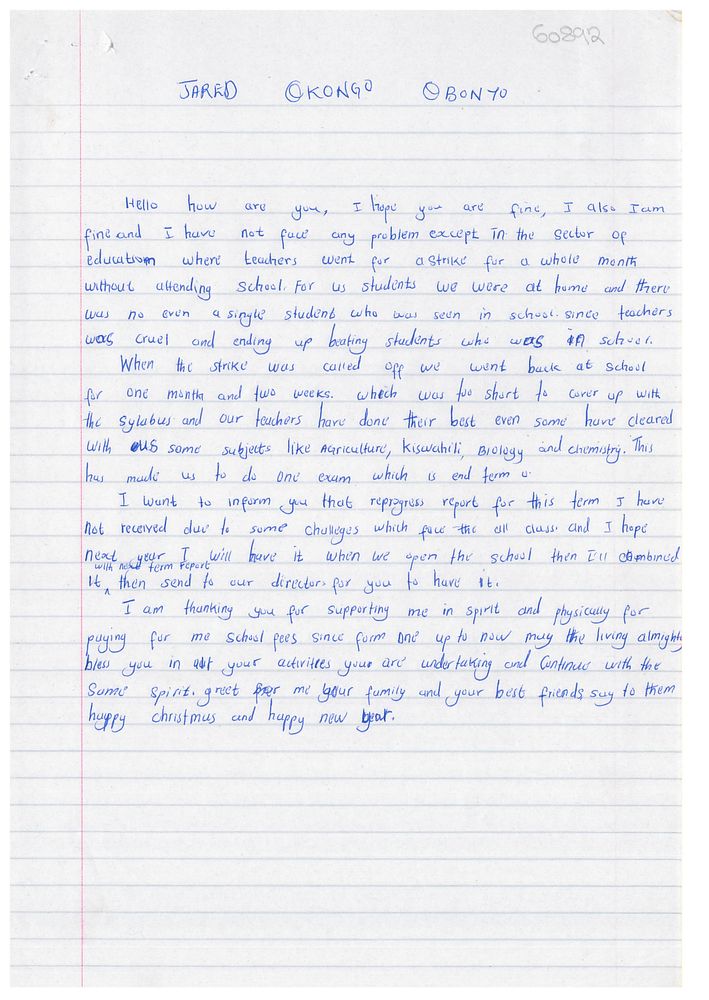 60892
JARED OKONGO OBONYO
Hello how are you, I hope you are fine, I also I am
fine and I have not face any problem except in the sector of
education where teachers went for a strike for a whole month
without attending school. For us students we were at home and there
was no even a single student who was seen in school. since teachers
was cruel and ending up beating students who was in school.
When the strike was called off we went back at school
for one month and two weeks. which was too short to cover up with
the sylabus and our teachers have done their best even some have cleared
with us some subjects like Agriculture, Kiswahili, Biology and chemistry. This
has made us to do one exam which is end term
I want to inform you that reprogress report for this term I have
not received due to some challeges which face the all class. and I hope
next year I will have it when we open the school then I'll combined
with next term report
it, then send to our directors for you to have it.
I am thanking you for supporting me in spirit and physically for
paying for me school fees since form one up to now may the living almighty
bless you in your activities your are undertaking and continue with the
same spirit. greet for me your family and your best friends say to them
happy christmas and happy new year.